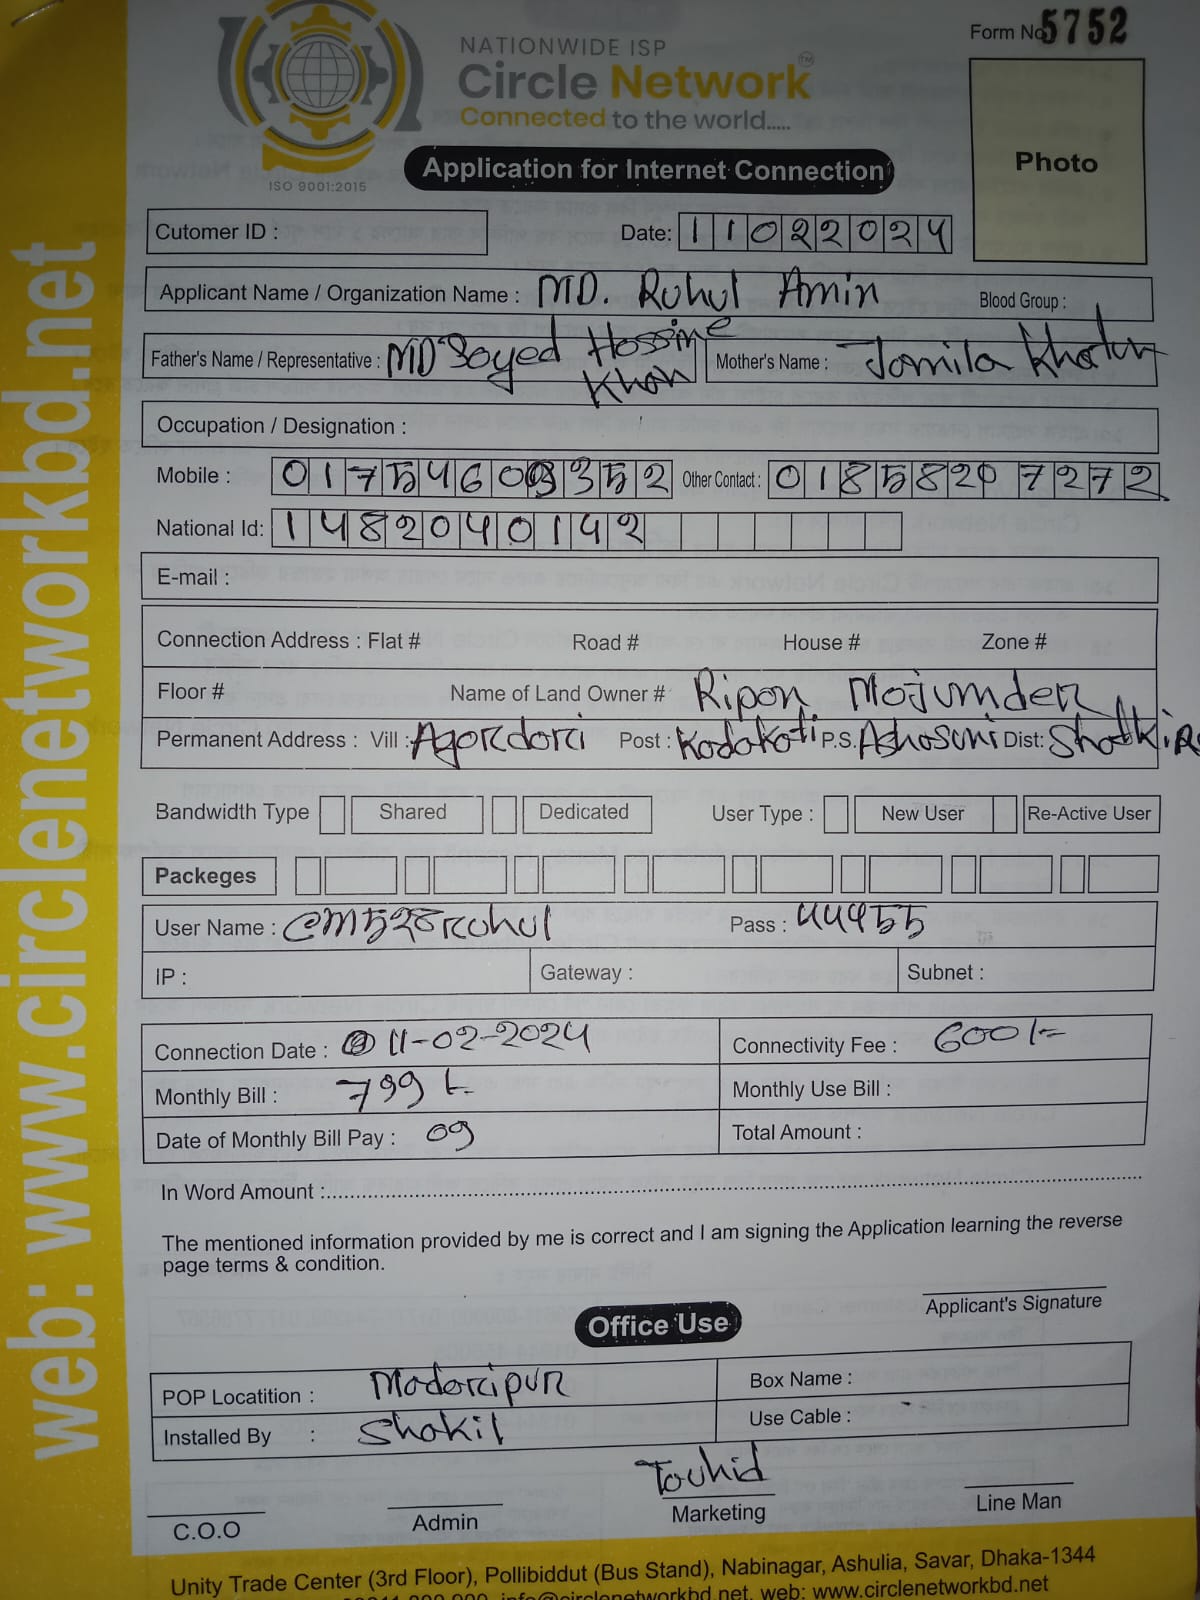 Form No 5752
NATIONWIDE ISP
Circle Network TM
Connected to the world.....
ISO 9001:2015
Application for Internet Connection
Photo
web: www.circlenetworkbd.net
Cutomer ID : Date: 11022024
Applicant Name / Organization Name : MD. Ruhul Amin Blood Group :
Father's Name / Representative : MD Sayed Hossine Khan Mother's Name : Jamila Khatun
Occupation / Designation :
Mobile : Other Contact : 01858207272
National Id: 1482040142
E-mail :
Connection Address : Flat # Road # House # Zone #
Floor # Name of Land Owner # Ripon Mojumder
Permanent Address : Vill : Agordari Post : Kadakati P.S. Ashasuni Dist:
Bandwidth Type Shared Dedicated User Type : New User Re-Active User
Packeges
User Name : Pass : 44455
IP : Gateway : Subnet :
Connection Date : 11-02-2024 Connectivity Fee : 600/=
Monthly Bill : 799 t. Monthly Use Bill :
Date of Monthly Bill Pay : 09 Total Amount :
In Word Amount :
The mentioned information provided by me is correct and I am signing the Application learning the reverse
page terms & condition.
Applicant's Signature
Office Use
POP Locatition : Madaripur Box Name :
Installed By : Shakil Use Cable : -
Touhid
C.O.O Admin Marketing Line Man
Unity Trade Center (3rd Floor), Pollibiddut (Bus Stand), Nabinagar, Ashulia, Savar, Dhaka-1344
info@circlenetworkbd.net, web: www.circlenetworkbd.net